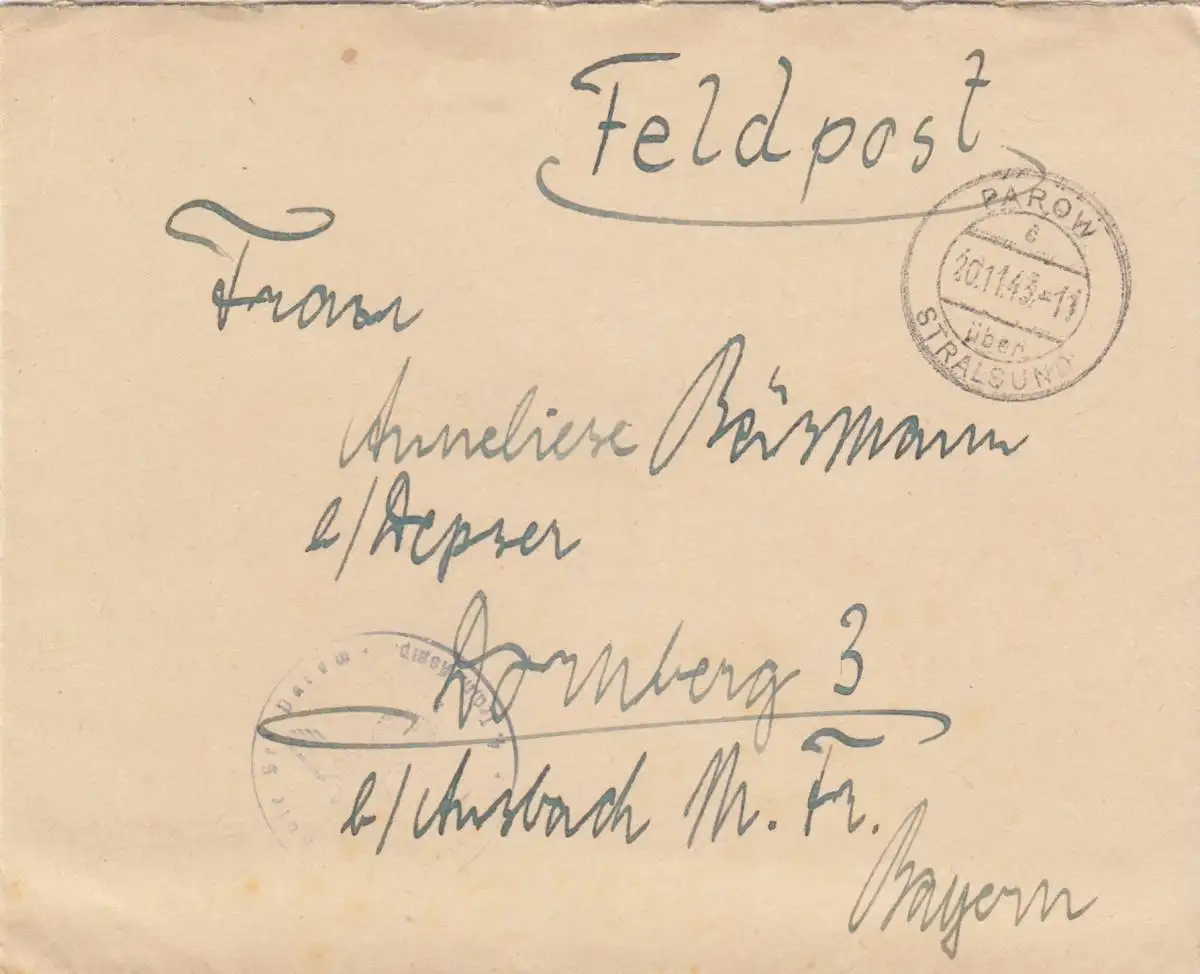 Feldpost
PAROW
c
20.11.43.-11
über
STRALSUND
Frau
Anneliese
b/
Dornberg 3
b/Ansbach M. Fr.
Bayern